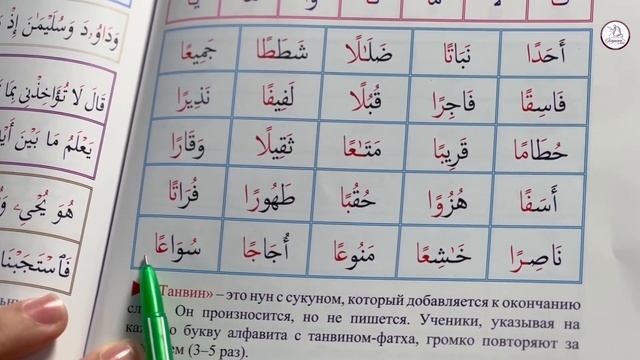 وَدَاوُۥدَ وَسُلَيْمَـٰنَ إِذْ
قَالَ لَا تُؤَاخِذْنِي بِمَا
يَعْلَمُ مَا بَيْنَ
هُوَ يُحْيِي
فَاسْتَجَبْنَا
أَحَدًا نَبَاتًا ضَلَـٰلًا شَطَطًا جَمِيعًا
فَاسِقًا فَاجِرًا قُبُلًا لَفِيفًا نَذِيرًا
حُطَامًا قَرِيبًا مَتَـٰعًا ثَقِيلًا وَقَارًا
أَسَفًا هُزُوًا حُقُبًا طَهُورًا فُرَاتًا
نَاصِرًا خَـٰشِعًا مَنُوعًا أُجَاجًا سُوَاعًا
Танвин» – это нун с сукуном, который добавляется к окончанию
Он произносится, но не пишется. Ученики, указывая на
букву алфавита с танвином-фатха, громко повторяют за
(3–5 раз).